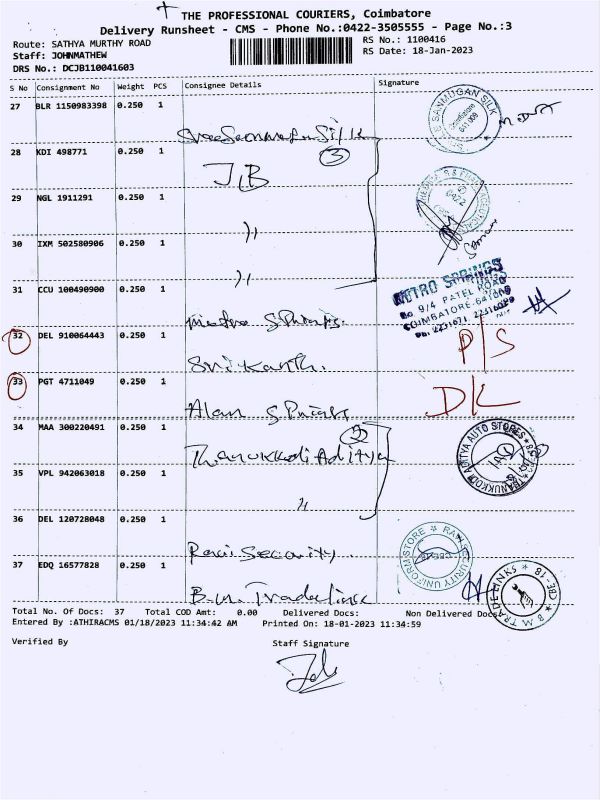 THE PROFESSIONAL COURIERS, Coimbatore
Delivery Runsheet - CMS - Phone No.:0422-3505555 - Page No.:3
Route: SATHYA MURTHY ROAD
RS No.: 1100416
Staff: JOHNMATHEW
RS Date: 18-Jan-2023
DRS No.: DCJB110041603
S No Consignment No Weight PCS Consignee Details Signature
27 BLR 1150983398 0.250 1
28 KDI 498771 0.250 1
3
J,B
29 NGL 1911291 0.250 1
30 IXM 502580906 0.250 1
31 CCU 100490900 0.250 1
METRO SPRINGS
No 9/4 PATEL ROAD
COIMBATORE-641009
Metro Springs.
32 DEL 910064443 0.250 1
P/S
Srikanth.
33 PGT 4711049 0.250 1
DK
Alan Springs
34 MAA 300220491 0.250 1
2
Thanukkodi Aditya
THANUKKODI ADITYA AUTO STORES
35 VPL 942063018 0.250 1
36 DEL 120728048 0.250 1
Ravi Security.
37 EDQ 16577828 0.250 1
B.M. Tradelinks
B.M. TRADELINKS CBE-18
Total No. Of Docs: 37 Total COD Amt: 0.00 Delivered Docs: Non Delivered Docs:
Entered By :ATHIRACMS 01/18/2023 11:34:42 AM Printed On: 18-01-2023 11:34:59
Verified By Staff Signature